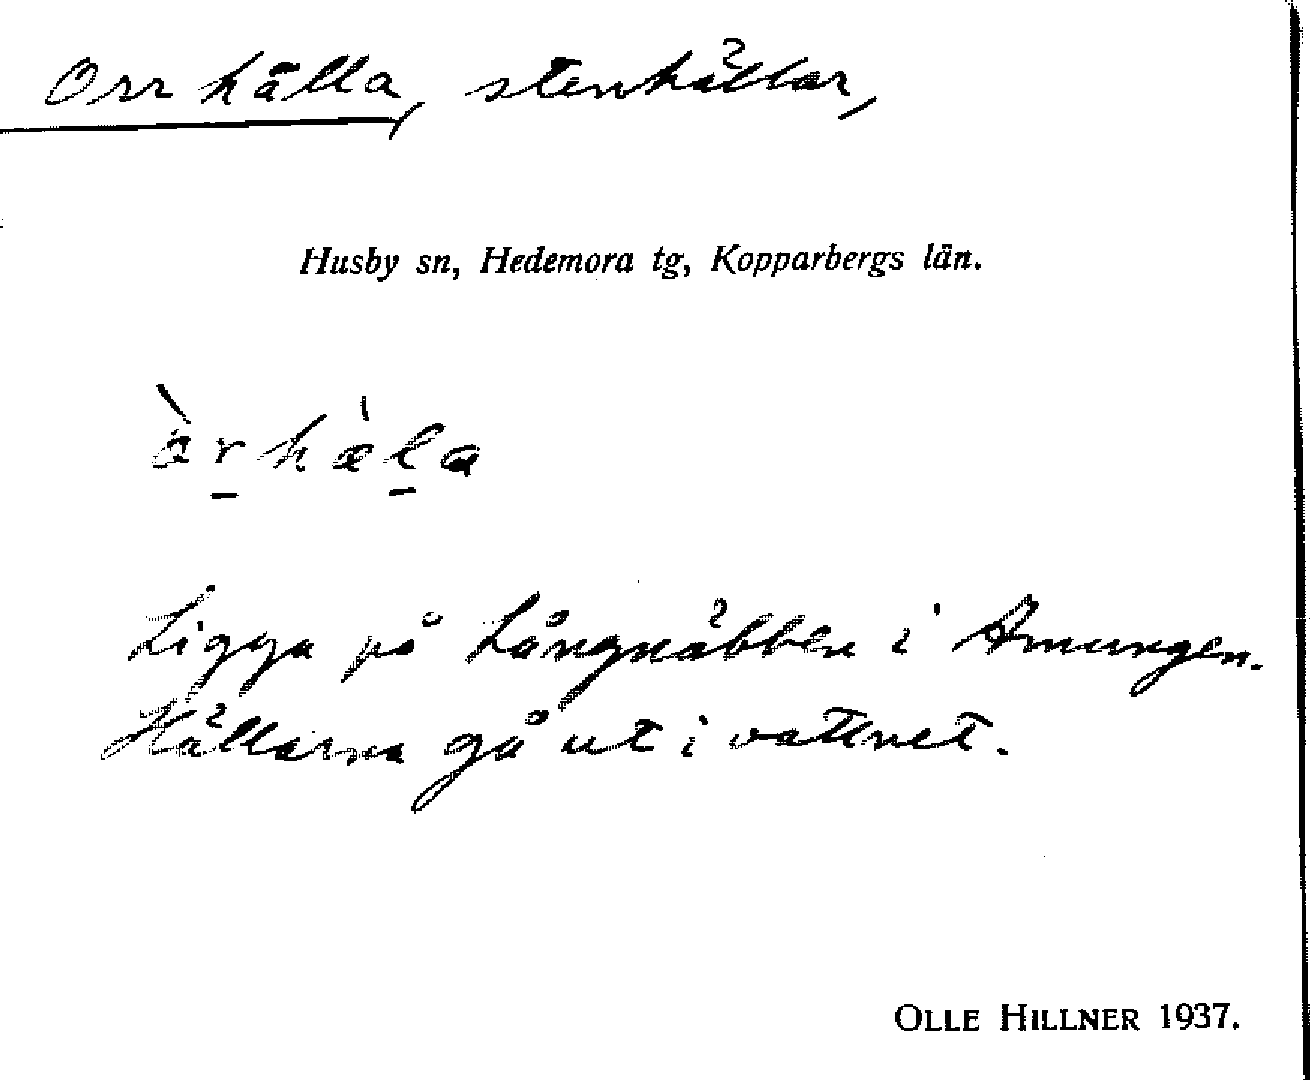 Orrhälla, stenhällar,
Husby sn, Hedemora tg, Kopparbergs län.
àr̲hæ̀l̲a
Ligga på Långnäbben i Amungen.
Hällarna gå ut i vattnet.
OLLE HILLNER 1937.